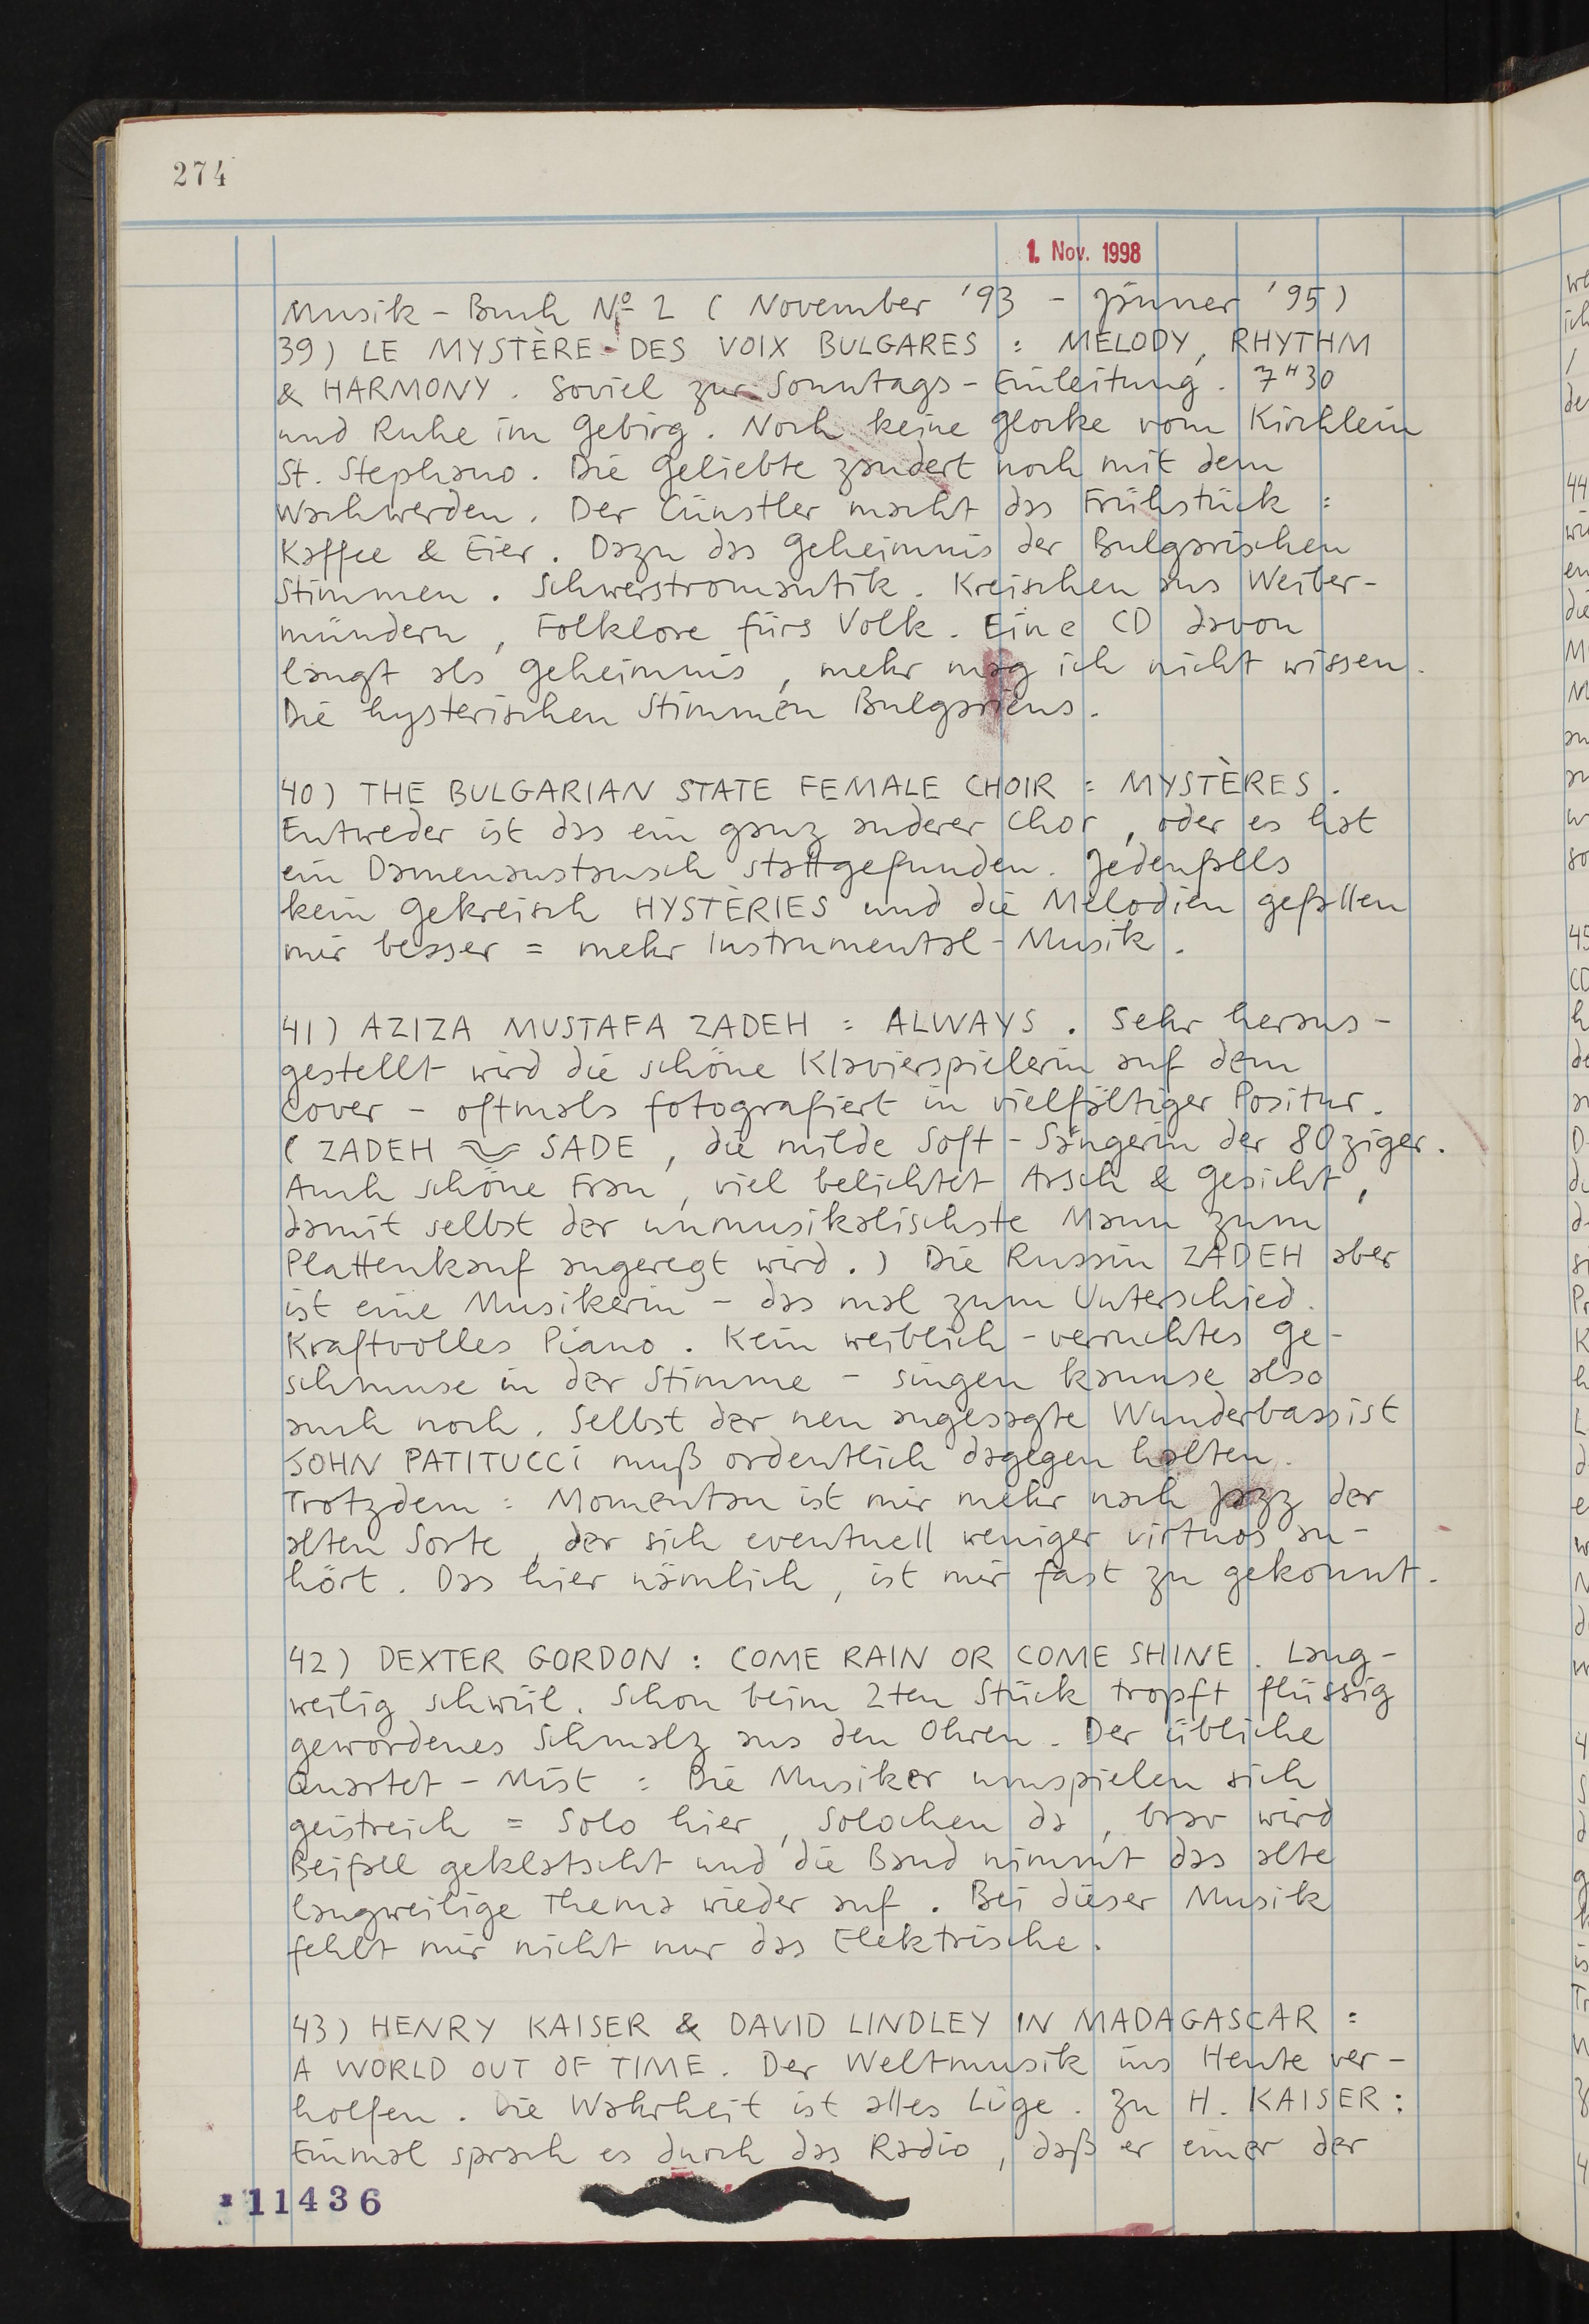 274
1. Nov. 1998
Musik - Buch Nº 2 ( November '93 - Jänner '95 )
39 ) LE MYSTÈRE DES VOIX BULGARES : MELODY, RHYTHM
& HARMONY . Soviel zur Sonntags - Einleitung . 7"30
und Ruhe im Gebirg . Noch keine Glocke vom Kirchlein
St. Stephano . Die Geliebte zaudert noch mit dem
Wachwerden . Der Cünstler macht das Frühstück :
Kaffee & Eier . Dazu das Geheimnis der Bulgarischen
Stimmen . Schwerstromantik . Kreischen aus Weiber-
mündern , Folklore fürs Volk . Eine CD davon
langt als Geheimnis , mehr mag ich nicht wissen .
Die hysterischen Stimmen Bulgariens .
40 ) THE BULGARIAN STATE FEMALE CHOIR : MYSTÈRES .
Entweder ist das ein ganz anderer Chor , oder es hat
ein Damenaustausch stattgefunden . Jedenfalls
kein Gekreisch HYSTÈRIES und die Melodien gefallen
mir besser = mehr Instrumental - Musik .
41 ) AZIZA MUSTAFA ZADEH : ALWAYS . Sehr heraus-
gestellt wird die schöne Klavierspielerin auf dem
Cover - oftmals fotografiert in vielfältiger Positur .
( ZADEH ≈ SADE , die milde Soft - Sängerin der 80ziger .
Auch schöne Frau , viel belichtet Arsch & Gesicht ,
damit selbst der unmusikalischste Mann zum
Plattenkauf angeregt wird . ) Die Russin ZADEH aber
ist eine Musikerin - das mal zum Unterschied .
Kraftvolles Piano . Kein weiblich - verruchtes Ge-
schmuse in der Stimme - singen kannse also
auch noch . Selbst der neu angesagte Wunderbassist
JOHN PATITUCCI muß ordentlich dagegen halten .
Trotzdem : Momentan ist mir mehr nach Jazz der
alten Sorte , der sich eventuell weniger virtuos an-
hört . Das hier nämlich , ist mir fast zu gekonnt .
42 ) DEXTER GORDON : COME RAIN OR COME SHINE . Lang-
weilig schwül . Schon beim 2ten Stück tropft flüssig
gewordenes Schmalz aus den Ohren . Der übliche
Quartet - Mist : Die Musiker umspielen sich
geistreich = Solo hier , Solochen da , brav wird
Beifall geklatscht und die Band nimmt das alte
langweilige Thema wieder auf . Bei dieser Musik
fehlt mir nicht nur das Elektrische .
43 ) HENRY KAISER & DAVID LINDLEY IN MADAGASCAR :
A WORLD OUT OF TIME . Der Weltmusik ins Heute ver-
holfen . Die Wahrheit ist alles Lüge . Zu H. KAISER :
Einmal sprach es durch das Radio , daß er einer der
11436